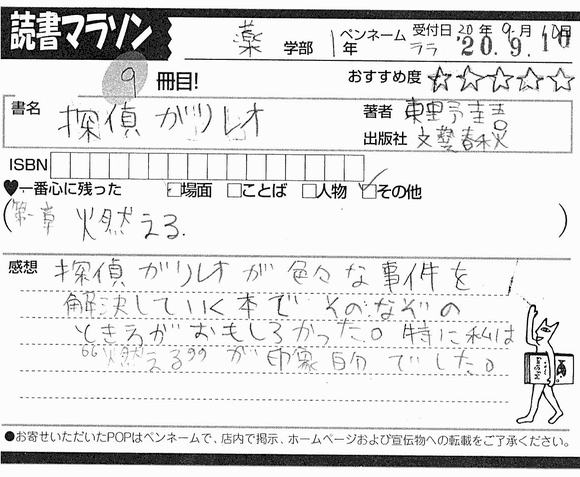 読書マラソン
薬 学部 1年 ペンネーム ララ 受付日 20年 9月 10日
'20.9.10
9 冊目!
おすすめ度 ☆☆☆☆☆
書名 探偵ガリレオ
著者 東野圭吾
出版社 文藝春秋
ISBN
♥一番心に残った □場面 □ことば □人物 ☑その他
(第一章 燃える.)
感想 探偵ガリレオが色々な事件を
解決していく本で そのなぞの
ときるがおもしろかった。特に私は
"燃える"が印象自分でした。
●お寄せいただいたPOPはペンネームで、店内で掲示、ホームページおよび宣伝物への転載をご了承ください。